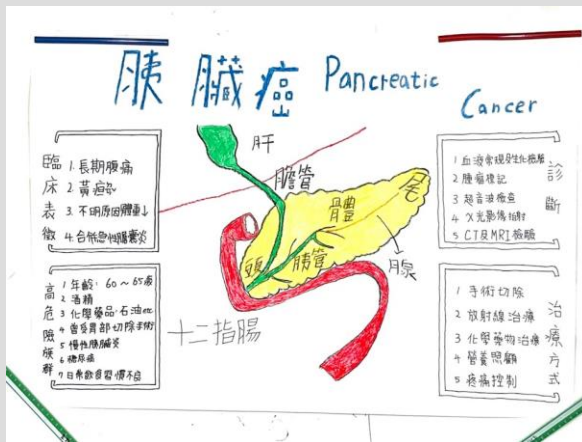 胰臟癌 Pancreatic
Cancer
臨床表徵
1. 長期腹痛
2. 黃疸
3. 不明原因體重↓
4. 合併急性膽囊炎
高危險族群
1 年齡: 60～65歲
2 酒精
3 化學藥品·石油etc
4 曾受胃部切除手術
5 慢性胰臟炎
6 糖尿病
7 日常飲食習慣不良
肝
膽管
體
尾
頭
胰管
腺
十二指腸
診斷
1 血液常規及生化檢驗
2 腫瘤標記
3 超音波檢查
4 X光影像拍射
5 CT及MRI檢驗
治療方式
1 手術切除
2 放射線治療
3 化學藥物治療
4 營養照顧
5 疼痛控制